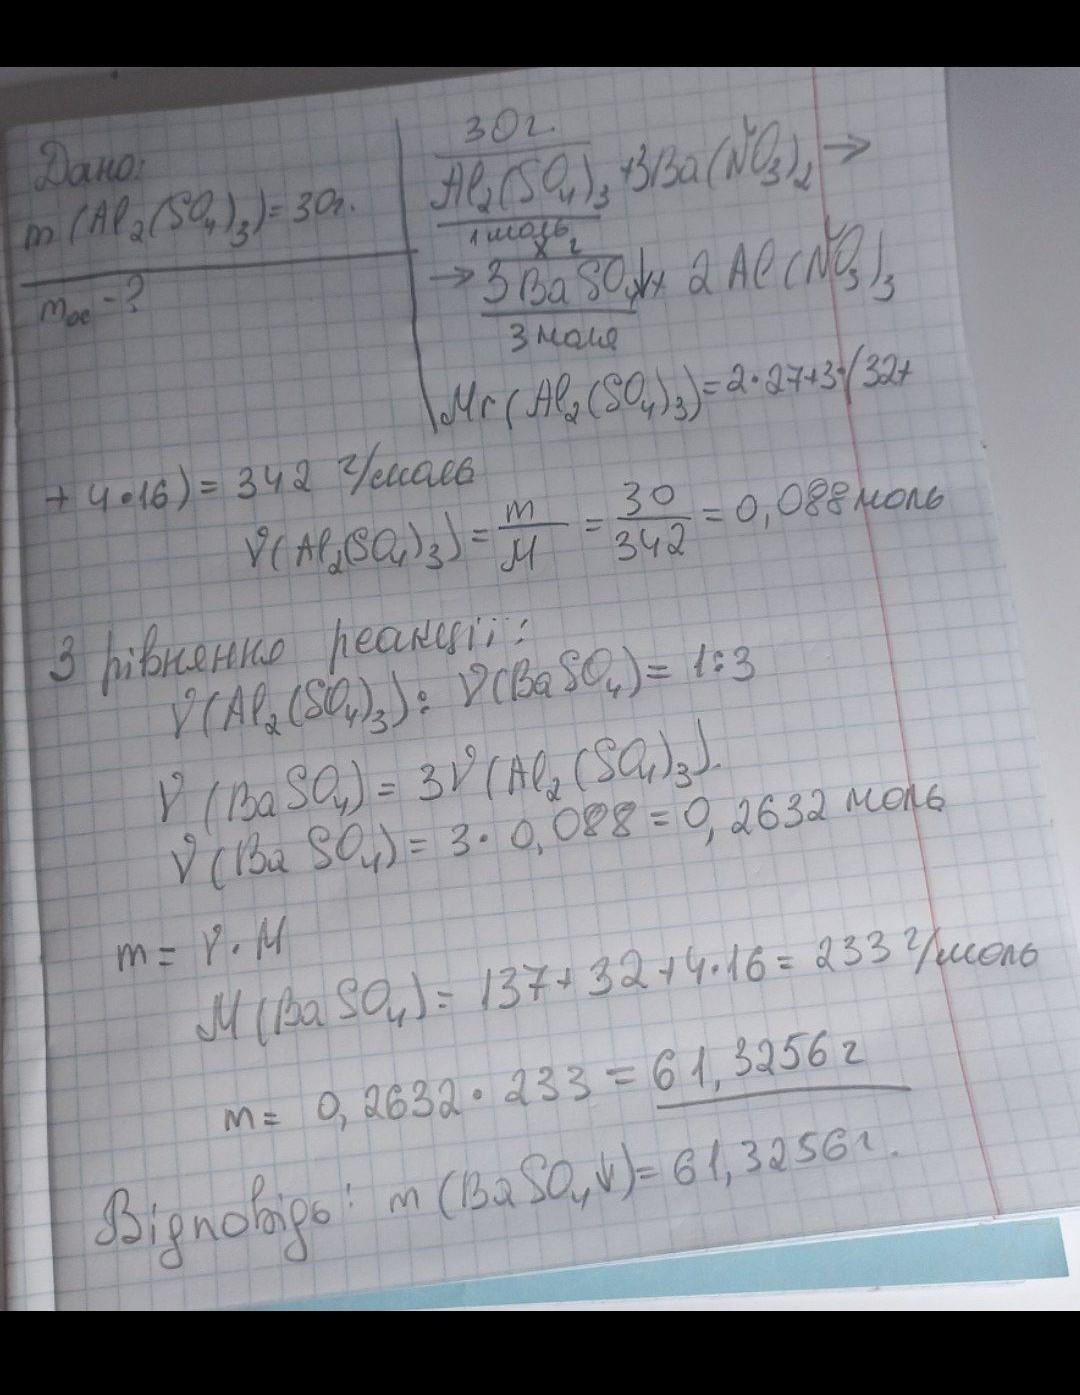 Дано:
m(Al₂(SO₄)₃)=30г.
mос-?
30г.
Al₂(SO₄)₃+3Ba(NO₃)₂→
1 моль
x г
→3BaSO₄↓+2Al(NO₃)₃
3 моля
Mr(Al₂(SO₄)₃)=2·27+3·(32+
+4·16)=342 г/моль
ν(Al₂(SO₄)₃)=m/M=30/342=0,088 моль
З рівняння реакції:
ν(Al₂(SO₄)₃):ν(BaSO₄)=1:3
ν(BaSO₄)=3ν(Al₂(SO₄)₃).
ν(BaSO₄)=3·0,088=0,2632 моль
m=ν·M
M(BaSO₄)=137+32+4·16=233 г/моль
m=0,2632·233=61,3256 г
Відповідь: m(BaSO₄↓)=61,3256г.